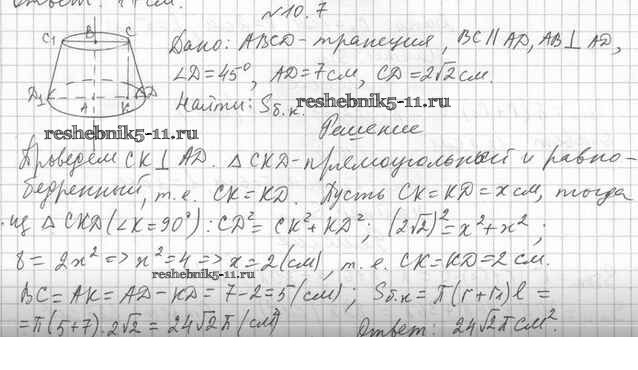 Ответ: см.
№10.7
C₁ B C
Дано: ABCD-трапеция, BC ∥ AD, AB ⊥ AD,
∠D=45°, AD=7см, CD=2√2см.
D₁ K A K D
Найти: Sб.к.
reshebnik5-11.ru
reshebnik5-11.ru
Решение
Проведем CK ⊥ AD. △CKD-прямоугольный и равно-
бедренный, т.е. CK=KD. Пусть CK=KD=x см, тогда
из △CKD(∠K=90°): CD²=CK²+KD²; (2√2)²=x²+x²;
8=2x² => x²=4 => x=2(см), т.е. CK=KD=2см.
reshebnik5-11.ru
BC=AK=AD-KD=7-2=5(см); Sб.к=π(r+r₁)l=
=π(5+7)·2√2=24√2π(см²)
Ответ: 24√2π см².